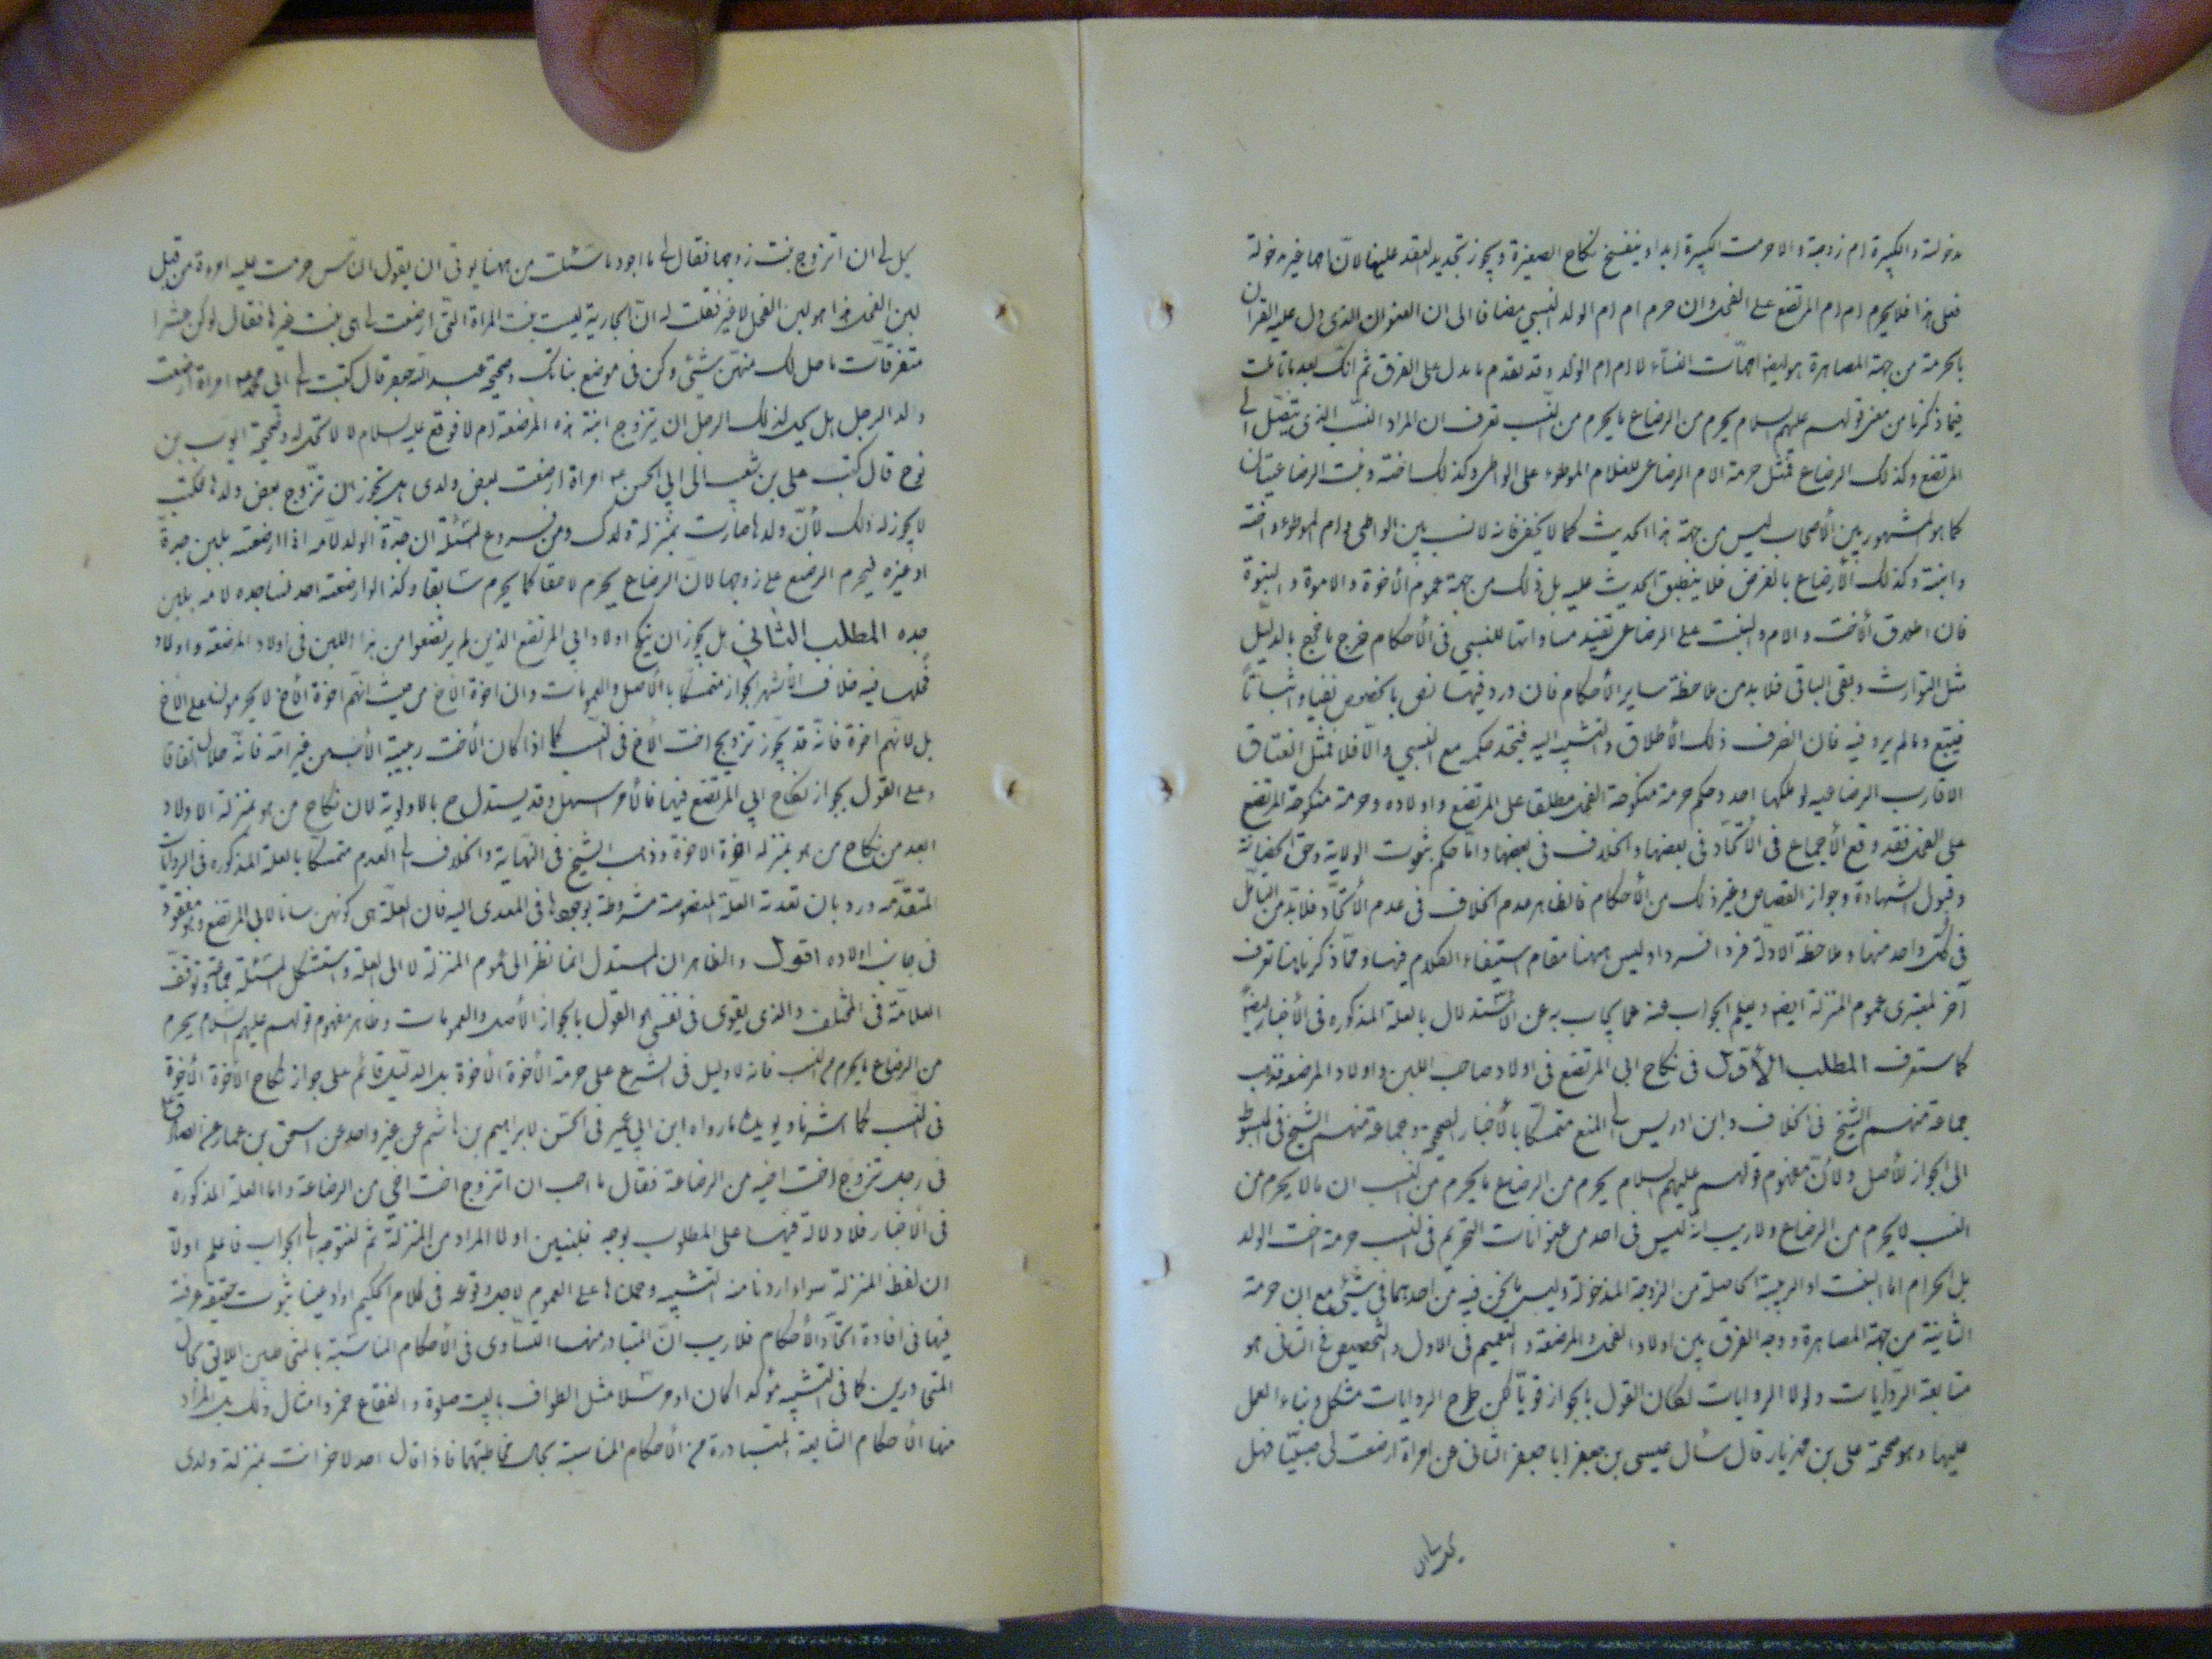 مدخولة والكبيرة ام زوجة والا حرمت الكبيرة ابدا وينفسخ نكاح الصغيرة ويجوز تجديد العقد عليها لان امها غير مدخولة
فعلى هذا فلا يحرم ام ام المرتضع على الفحل وان حرم ام ام الولد النسبي مضافا الى ان العنوان الذى دل عليه القران
بالحرمة من جهة المصاهرة هو ايضا امهات النساء لا ام ام الولد وقد تقدم ما يدل على الفرق ثم انك بعد ما تاملت
فيما ذكرنا من معنى قولهم عليهم السلام يحرم من الرضاع ما يحرم من النسب تعرف ان المراد النسب الذى يتصل الى
المرتضع وكذلك الرضاع فمثل حرمة الام الرضاعى للغلام الموطوء على الواطى وكذلك اخته وبنت الرضاعيتان
كما هو المشهور بين الأصحاب ليس من جهة هذا الحديث كما لا يخفى فانه لا نسب بين الواطى وام الموطوء واخته
وابنته وكذلك الأرضاع بالفرض فلا ينطبق الحديث عليه بل ذلك من جهة عموم الأخوة والامومة والبنوة
فان اطلاق الأخت والام والبنت على الرضاعى تفيد مساواتها للنسبى فى الأحكام خرج ما خرج بالدليل
مثل التوارث وبقى الباقى فلا بد من ملاحظة ساير الأحكام فان ورد فيها نص بالخصوص نفيا واثباتا
فيتبع وما لم يرد فيه فان انصرف ذلك الأطلاق والتشبيه اليه فيتحد حكمه مع النسبي والا فلا فمثل انعتاق
الاقارب الرضاعيه لو ملكها احد وحكم حرمة منكوحة الفحل مطلقا على المرتضع واولاده وحرمة منكوحة المرتضع
على الفحل فقد وقع الأجماع فى الأتحاد فى بعضها والخلاف فى بعضها واما حكم ثبوت الولاية وحق الحضانة
وقبول الشهادة وجواز القصاص وغير ذلك من الأحكام فالظاهر عدم الخلاف فى عدم الأتحاد فلا بد من التامل
فى كل واحد منها وملاحظة الادلة فردا فردا وليس ههنا مقام استيفاء الكلام فيها ومما ذكرنا هنا تعرف
آخر لمعتبرى عموم المنزلة ايضا ويعلم الجواب عنه عما يجاب به عن الأستدلال بالعلة المذكوره فى الأخبار ايضا
كما ستعرف المطلب الأول فى نكاح ابى المرتضع فى اولاد صاحب اللبن واولاد المرضعه فذهب
جماعة منهم الشيخ فى الخلاف وابن ادريس الى المنع متمسكا بالأخبار الصحيحة وجماعة منهم الشيخ فى المبسوط
الى الجواز للأصل ولأن مفهوم قولهم عليهم السلام يحرم من الرضاع ما يحرم من النسب ان ما لا يحرم من
النسب لا يحرم من الرضاع ولا ريب انه ليس فى احد من عنوانات التحريم فى النسب حرمة اخت الولد
بل الحرام اما البنت او الربيبة الحاصلة من الزوجة المدخولة وليس ما نحن فيه من احدهما فى شيئى مع ان حرمة
الثانية من جهة المصاهرة ووجه الفرق بين اولاد الفحل والمرضعة والتعميم فى الاول والتخصيص فى الثانى هو
متابعة الروايات ولولا الروايات لكان القول بالجواز قويا لكن طرح الروايات مشكل وبناء العمل
عليها وهو صحيحة على بن مهزيار قال سأل عيسى بن جعفر ابا جعفر الثانى عن امراة ارضعت لى صبيا فهل
يحل لى ان اتزوج بنت زوجها فقال لى ما اجود ما سئلت من ههنا يوتى ان يقول الناس حرمت عليه امرءة من قبل
لبن الفحل هذا هو لبن الفحل لا غير فقلت له ان الجارية ليست بنت المراة التى ارضعت لى هى بنت غيرها فقال لو كن عشرا
متفرقات ما حل لك منهن شيئى وكن فى موضع بناتك وصحيحة عبد الله جعفر قال كتبت الى ابى محمد امراة ارضعت
ولد الرجل هل يحل لذلك الرجل ان يتزوج ابنة هذه المرضعة ام لا فوقع عليه السلام لا لا تحل له وصحيحة ايوب بن
نوح قال كتب على بن شعيب الى ابى الحسن امراة ارضعت بعض ولدى هل يجوز ان تزوج بعض ولدها فكتب
لا يجوز له ذلك لأن ولدها صارت بمنزلة ولدك ومن فروع المسئلة ان جدة الولد لامه اذا ارضعته بلبن جده
او غيره فيحرم المرضع على زوجها لان الرضاع يحرم لاحقا كما يحرم سابقا وكذا لو ارضعته احد نساء جده لامه بلبن
جده المطلب الثاني هل يجوز ان ينكح اولاد ابي المرتضع الذين لم يرتضعوا من هذا اللبن فى اولاد المرضعة واولاد
فحلها فيه خلاف الأشهر الجواز متمسكا بالأصل والعمومات وان اخوة الأخ من حيث انهم اخوة الأخ لا يحرمون على الأخ
بل لانهم اخوة فانه قد يجوز تزويج اخت الأخ فى النسب كما اذا كان الأخت ربيبة الأب من غير امه فانه حلال اتفاقا
وعلى القول بجواز نكاح ابى المرتضع فيها فالأمر سهل وقد يستدل ح بالاولوية لان نكاح من هو بمنزلة الاولاد
ابعد من نكاح من هو بمنزله اخوة الاخوة وذهب الشيخ فى النهاية والخلاف الى العدم متمسكا بالعلة المذكوره فى الروايات
المتقدمه ورد بان تعدية العلة المنصوصة مشروطة بوجودها فى المعدى اليه فان العلة هى كونهن بناتا لابى المرتضع وهو مفقود
فى جانب اولاده اقول والظاهر ان المستدل انما نظر الى عموم المنزلة لا الى العلة واستشكل المسئلة جماعة وتوقف
العلامة فى المختلف والذى يقوى فى نفسى هو القول بالجواز الأصل والعمومات وظاهر مفهوم قولهم عليهم السلام يحرم
من الرضاع ما يحرم من النسب فانه لا دليل فى الشرع على حرمة الأخوة الأخوة بل الدليل قائم على جواز نكاح الأخوة الأخوة
فى النسب كما اشرنا ويؤيده ما رواه ابن ابى عمير فى الحسن لابراهيم بن هاشم عن غير واحد عن اسحق بن عمار عن الصادق
فى رجل تزوج اخت اخيه من الرضاعة فقال ما احب ان اتزوج اخت اخى من الرضاعة واما العلة المذكورة
فى الأخبار فلا دلالة فيها على المطلوب بوجه فلنبين اولا المراد من المنزلة ثم لنتوجه الى الجواب فاعلم اولا
ان لفظ المنزلة سواء اردنا منه التشبيه وحملناها على العموم لاجل وقوعه فى كلام الحكيم او ادعينا ثبوت حقيقة عرفية
فيها فى افادة اتحاد الأحكام فلا ريب ان المتبادر منها التساوى فى الأحكام المناسبة بالمتخاطبين اللائق بحال
المتحاورين كما فى التشبيه مؤكدا كان او مرسلا مثل الطواف بالبيت صلوة والفقاع خمر وامثال ذلك بل المراد
منها الأحكام الشايعة المتبادرة من الأحكام المناسبة بحال مخاطبتهما فاذا قال احد لاخر انت بمنزلة ولدى